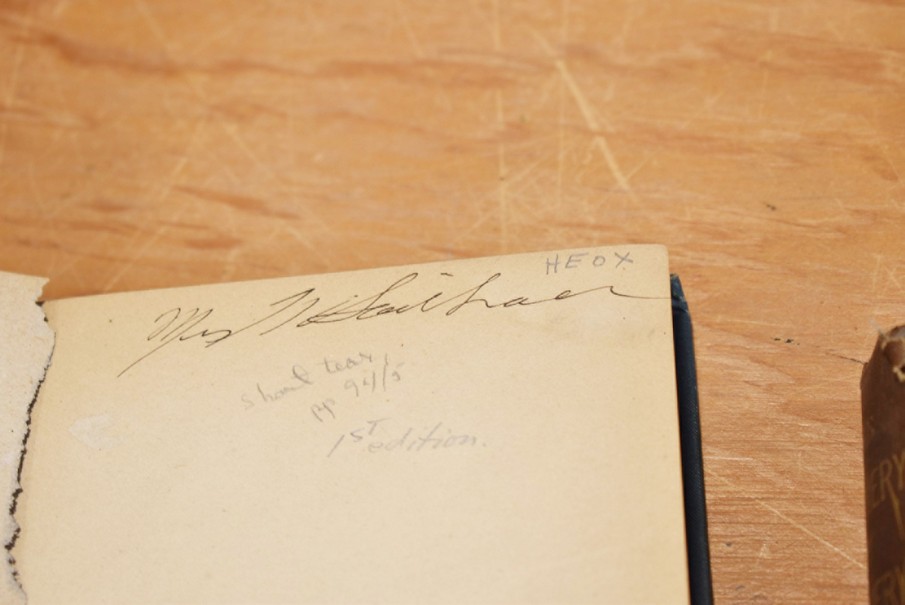 HEOX
Mrs
short tear,
pp 94/5
1ST edition.
ERY